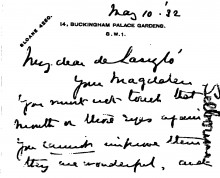 May 10 '32
SLOANE 4250.
14, BUCKINGHAM PALACE GARDENS.
S.W.1.
My dear de Laszló
Your Magdalen
You must not touch that
mouth or those eyes again
You cannot improve them
they are wonderful, and